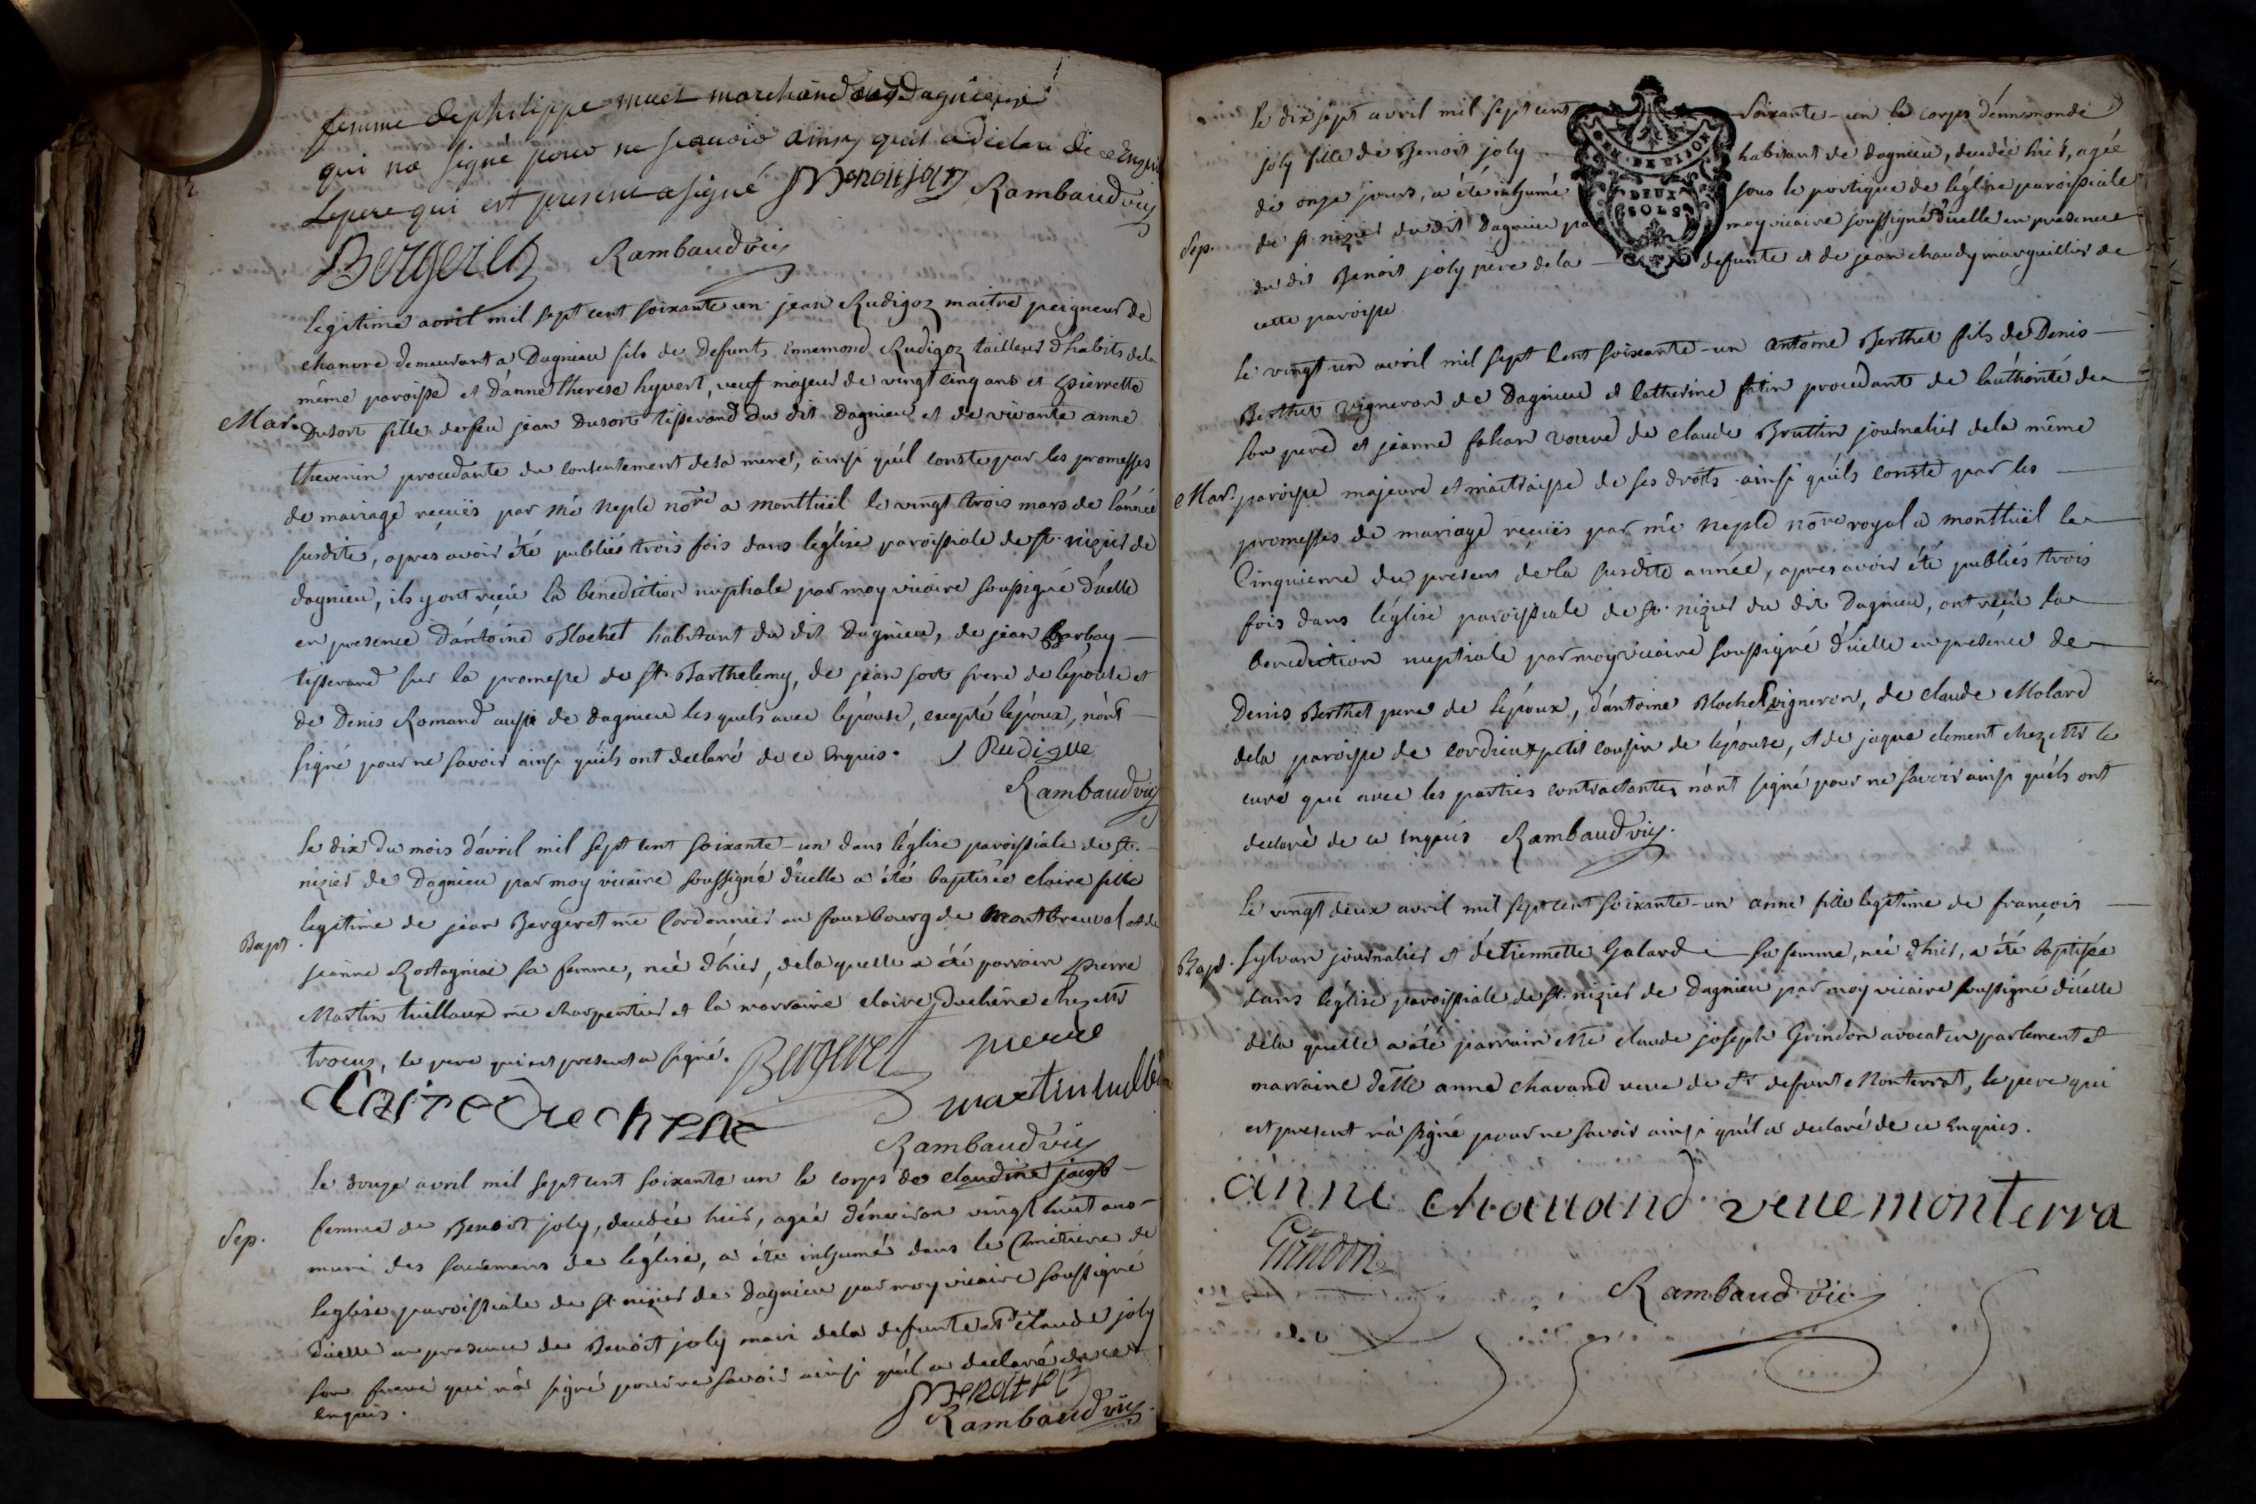 femme de philippe muet marchand dud Dagnieu
qui na signé pour ne scavoir ainsy quil a declaré de ce Enquis
Le pere qui est present a signé Benoit joly Rambaud vic
Bergeret Rambaud vic
legitime avril mil sept cent soixante un jean Rudigoz maitre peigneur de
chanvre demeurant a Dagnieu fils de defunts Ennemond Rudigoz tailleur d'habits de la
même paroisse et d'anne therese hyvert, veuf majeur de vingt cinq ans et pierrette
Mar. Dusort fille de feu jean Dusort tisserand du dit Dagnieu et de vivante anne
thevenin procedante du consentement de sa mere, ainsi qu'il conste par les promesses
de mariage reçuës par Me Neple nore a montluël le vingt trois mars de l'année
susdite, apres avoir été publiés trois fois dans l'église paroissiale de st. nizier de
dagnieu, ils y ont reçu la benediction nuptiale par moy vicaire soussigné d'icelle
en presence d'antoine Blochet habitant du dit Dagnieu, de jean Barbay
tisserand sur la promesse de st. Barthelemy, de jean sort frere de lepouse et
de Denis Romand aussi de dagnieu lesquels avec l'épouse, excepté l'époux, n'ont
signé pour ne savoir ainsi qu'ils ont declaré de ce Enquis. J Rudigue
Rambaud vic
Le dix du mois d'avril mil sept cent soixante-un dans l'église paroissiale de st.
nizier de Dagnieu par moy vicaire soussigné d'icelle a été baptisée claire fille
legitime de jean Bergeret me Cordonnier au fauxbourg de Montbreuval et de
Bapt. jeanne Rostagniat sa femme, née d'hier, de la quelle a été parrain pierre
Martin tuillaux me charpentier et la marraine claire Duchêne chez Mr
trocus, le pere qui est present a signé. Bergeret pierre
Claire Duchene martin tuillie
Rambaud vic
Le douze avril mil sept cent soixante un le corps de claudine jacob
Sep. femme de Benoit joly, decedée hier, agée d'environ vingt huit ans
muni des sacremens de l'église, a été inhumé dans le Cimetiere de
l'eglise paroissiale de st nizier de Dagnieu par moy vicaire soussigné
d'icelle en presence de Benoit joly mari de la defunte et claude joly
son frere qui n'a signé pour ne savoir ainsi qu'il a declaré de ce
enquis. Benoit joly
Rambaud vic
Le dix sept avril mil sept cent soixante-un le corps d'ennemonde
joly fille de Benoit joly habitant de Dagnieu, decedée hier, agée
de onze jours, a été inhumé sous le portique de l'église paroissiale
Sep. de st. nizier du dit Dagnieu par moy vicaire soussigné d'icelle en presence
du dit Benoit joly père de la defunte et de jean chaudy marguillier de
cette paroisse
GEN. DE DIJON
DEUX
SOLS
Le vingt un avril mil sept Cent soixante-un antoine Berthet fils de Denis
Berthet vigneron de Dagnieu et Catherine fatin procedant de l'authorité de
son pere et jeanne falcan veuve de claude Bruttin journalier de la même
Mar. paroisse majeure et maitraisse de ses droits ainsi qu'ils conste par les
promesses de mariage reçuës par me Neple nore royal a montluël le
Cinquieme du present de la susdite année, apres avoir été publiés trois
fois dans l'église paroissiale de st. nizier du dit Dagnieu, ont reçu la
benediction nuptiale par moy vicaire soussigné d'icelle en presence de
Denis Berthet pere de l'époux, d'antoine Blochet vigneron, de claude Molard
de la paroisse de cordieux petit cousin de l'épouse, et de jaque clement chez Mr le
curé qui avec les parties contractantes n'ont signé pour ne savoir ainsi qu'ils ont
declaré de ce Enquis Rambaud vic.
Le vingt deux avril mil sept cent soixante-un anne fille legitime de françois
Bapt. sylvan journalier et d'etiennette Galard sa femme, née d'hier, a été baptisée
dans l'eglise paroissiale de st. nizier de Dagnieu par moy vicaire soussigné d'icelle
de la quelle a été parrain Me claude joseph Grindon avocat en parlement et
marraine delle anne chavand veuve de Sr defunt Monterrat, le pere qui
est present n'a signé pour ne savoir ainsi qu'il a declaré de ce Enquis.
anne chavand veue monterra
Grindon
Rambaud vic